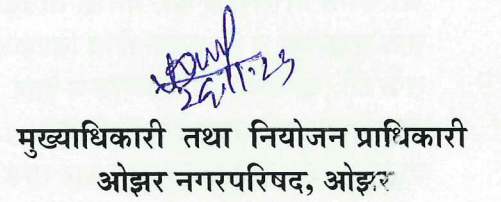 मुख्याधिकारी तथा नियोजन प्राधिकारी
ओझर नगरपरिषद, ओझर